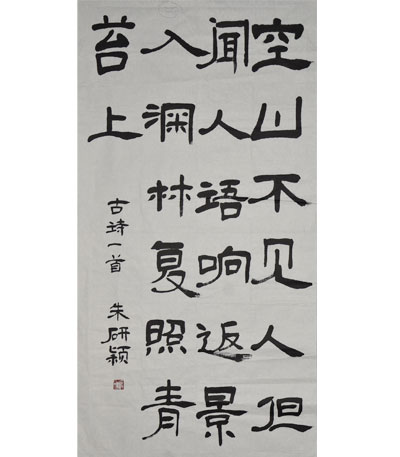 空山不见人但
闻人语响返景
入深林复照青
苔上
古诗一首 朱研颖